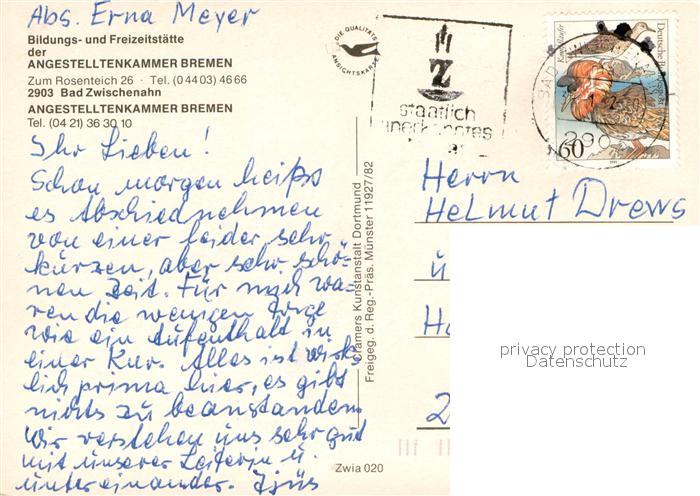 Abs. Erna Meyer
Bildungs- und Freizeitstätte
der
ANGESTELLTENKAMMER BREMEN
Zum Rosenteich 26 · Tel. (0 44 03) 46 66
2903 Bad Zwischenahn
ANGESTELLTENKAMMER BREMEN
Tel. (04 21) 36 30 10
Ihr Lieben!
Schon morgen heißs
es Abschiednehmen
von einer leider sehr
kurzen, aber sehr schö-
nen Zeit. Für mich wa-
ren die wenigen Tage
wie ein Aufenthalt in
einer Kur. Alles ist wirk-
lich prima hier, es gibt
nichts zu beanstanden
Wir verstehen uns sehr gut
mit unserer Leiterin u.
untereinander. Tjüs
DIE QUALITÄTS
ANSICHTSKARTE
Cramers Kunstanstalt Dortmund
Freigeg. d. Reg.-Präs. Münster 11927/82
Zwia 020
Z
staatlich
anerkanntes
BAD
290
Deutsche Bundespost
60
Herrn
Helmut Drews
ü
Ha
2
privacy protection
Datenschutz